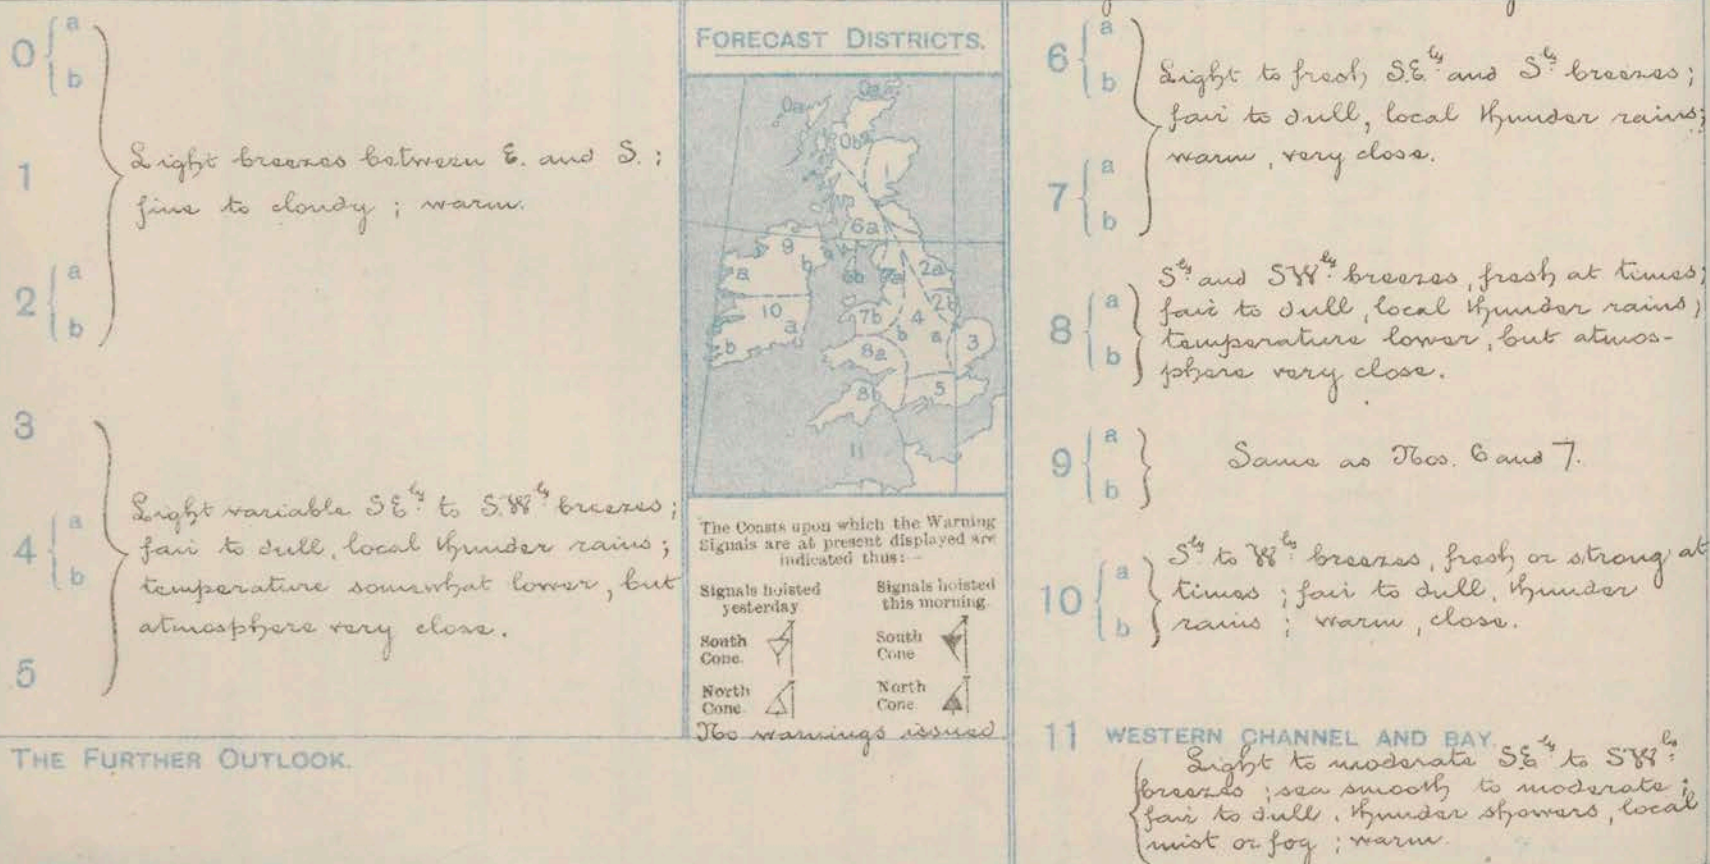 0 { a
b
1
2 { a
b
Light breezes between E. and S. ;
fine to cloudy ; warm.
3
4 { a
b
5
Light variable SE.ly to S.W.ly breezes ;
fair to dull, local thunder rains ;
temperature somewhat lower, but
atmosphere very close.
THE FURTHER OUTLOOK.
FORECAST DISTRICTS.
0a
0a
0b
6a
9
a
b
6b
7a
2a
2b
10
a
b
7b
b
4
a
3
8a
8b
5
11
The Coasts upon which the Warning
Signals are at present displayed are
indicated thus:—
Signals hoisted
yesterday
South
Cone.
North
Cone
Signals hoisted
this morning.
South
Cone
North
Cone
No warnings issued
6 { a
b
7 { a
b
Light to fresh S.E.ly and S.ly breezes ;
fair to dull, local thunder rains ;
warm, very close.
8 { a
b
S.ly and SW.ly breezes, fresh at times ;
fair to dull, local thunder rains ;
temperature lower, but atmos-
phere very close.
9 { a
b
Same as Nos. 6 and 7.
10 { a
b
S.ly to W.ly breezes, fresh or strong at
times ; fair to dull, thunder
rains ; warm, close.
11 WESTERN CHANNEL AND BAY.
Light to moderate SE.ly to SW.ly
breezes ; sea smooth to moderate ;
fair to dull, thunder showers, local
mist or fog ; warm.